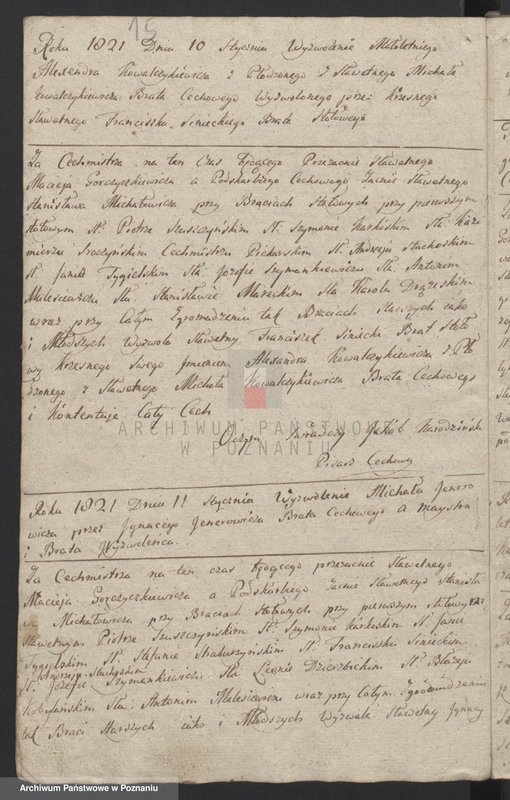 15
Roku 1821 Dnia 10 Stycznia Wyzwolenie Małoletniego
Alexandra Kowalczykiewicza z Płodzonego z Sławetnego Michała
Kowalczykiewicza Brata Cechowego Wyzwolonego przez Krzesnego
Sławetnego Franciszka Sinieckiego Brata Stołowego
Za Cechmistrza na ten Czas będącego Przezacnie Sławetnego
Macieja Gorczyczkiewicza a Podskarbiego Cechowego Zacnie Sławetnego
Stanisława Michałowicza przy Braciach Stołowych przy pierwszym
stołowym St. Piotrze Szuszczyńskim St. Szymonie Karkoskim Sła. Kazi
mierzu Cechmistrzu Piekarskim St. Andrzeju Stachoskim
St. Janie Tygielskim Sła. Józefie Szymankiewiczu Sła. Antonim
Malesiewiczu Sła. Stanisławie Maśeckim Sła Karolu
wraz przy Całym Zgromadzeniu tak Braciach Starszych iako
i Młodszych Wyzwola Sławetny Franciszek Siniecki Brat Stoło
wy Krzesnego Swego Imieniem Alexandra Kowalczykiewicza z Pło
dzonego z Sławetnego Michała Kowalczykiewicza Brata Cechowego
i Kontentuje Cały Cech
Jakób Narodziński
Pisarz Cechowy
Roku 1821 Dnia 11 Stycznia Wyzwolenie Michała Jenero
wicza przez Jgnacego Jenerowicza Brata Cechowego a maystra
i Brata Wyzwolenca
Za Cechmistrza na ten czas będącego przezacnie Sławetnego
Macieja Gorczyczkiewicza a Podskarbiego Zacnie Sławetnego Stanisła
wa Michałowicza przy Braciach Stołowych przy pierwszym stołowym
Sławetnym Piotrze Szuszczyńskim St. Szymonie Karkoskim St. Janie
Tygielskim St. Stefanie Straburzyńskim St. Franciszku Sinieckim
Andrzeju Stachyskim
St. Józefie Szymankiewiczu Sła. Leonie Dzierzbickim St. Błażeju
Kobylańskim Sła. Antonim Malesiewiczu wraz przy Całym Zgromadzeniu
tak Braci Starszych iako i Młodszych Wyzwala Sławetny Jgnacy
ARCHIWUM PAŃSTWOWE
W POZNANIU
Archiwum Państwowe w Poznaniu